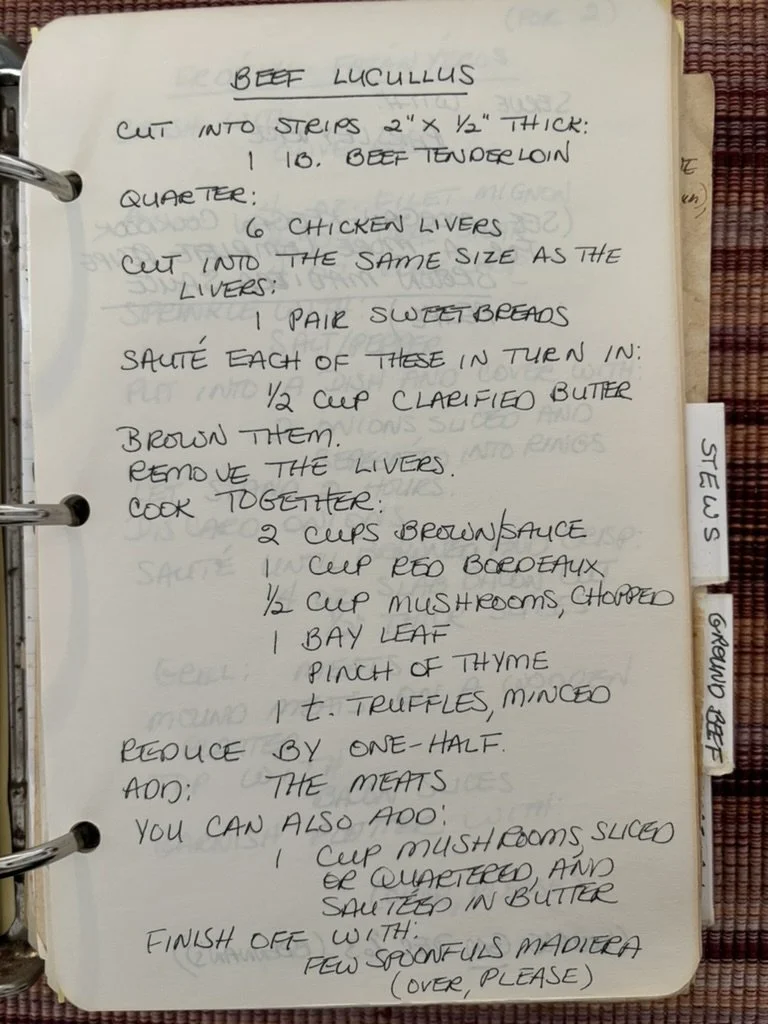 BEEF LUCULLUS
CUT INTO STRIPS 2" X ½" THICK:
1 lB. BEEF TENDERLOIN
QUARTER:
6 CHICKEN LIVERS
CUT INTO THE SAME SIZE AS THE
LIVERS:
1 PAIR SWEETBREADS
SAUTÉ EACH OF THESE IN TURN IN:
½ CUP CLARIFIED BUTTER
BROWN THEM.
REMOVE THE LIVERS.
COOK TOGETHER:
2 CUPS BROWN/SAUCE
1 CUP RED BORDEAUX
½ CUP MUSHROOMS, CHOPPED
1 BAY LEAF
PINCH OF THYME
1 t. TRUFFLES, MINCED
REDUCE BY ONE-HALF.
ADD: THE MEATS
YOU CAN ALSO ADD:
1 CUP MUSHROOMS, SLICED
OR QUARTERED, AND
SAUTÉED IN BUTTER
FINISH OFF WITH:
FEW SPOONFULS MADIERA
(OVER, PLEASE)
STEWS
GROUND BEEF